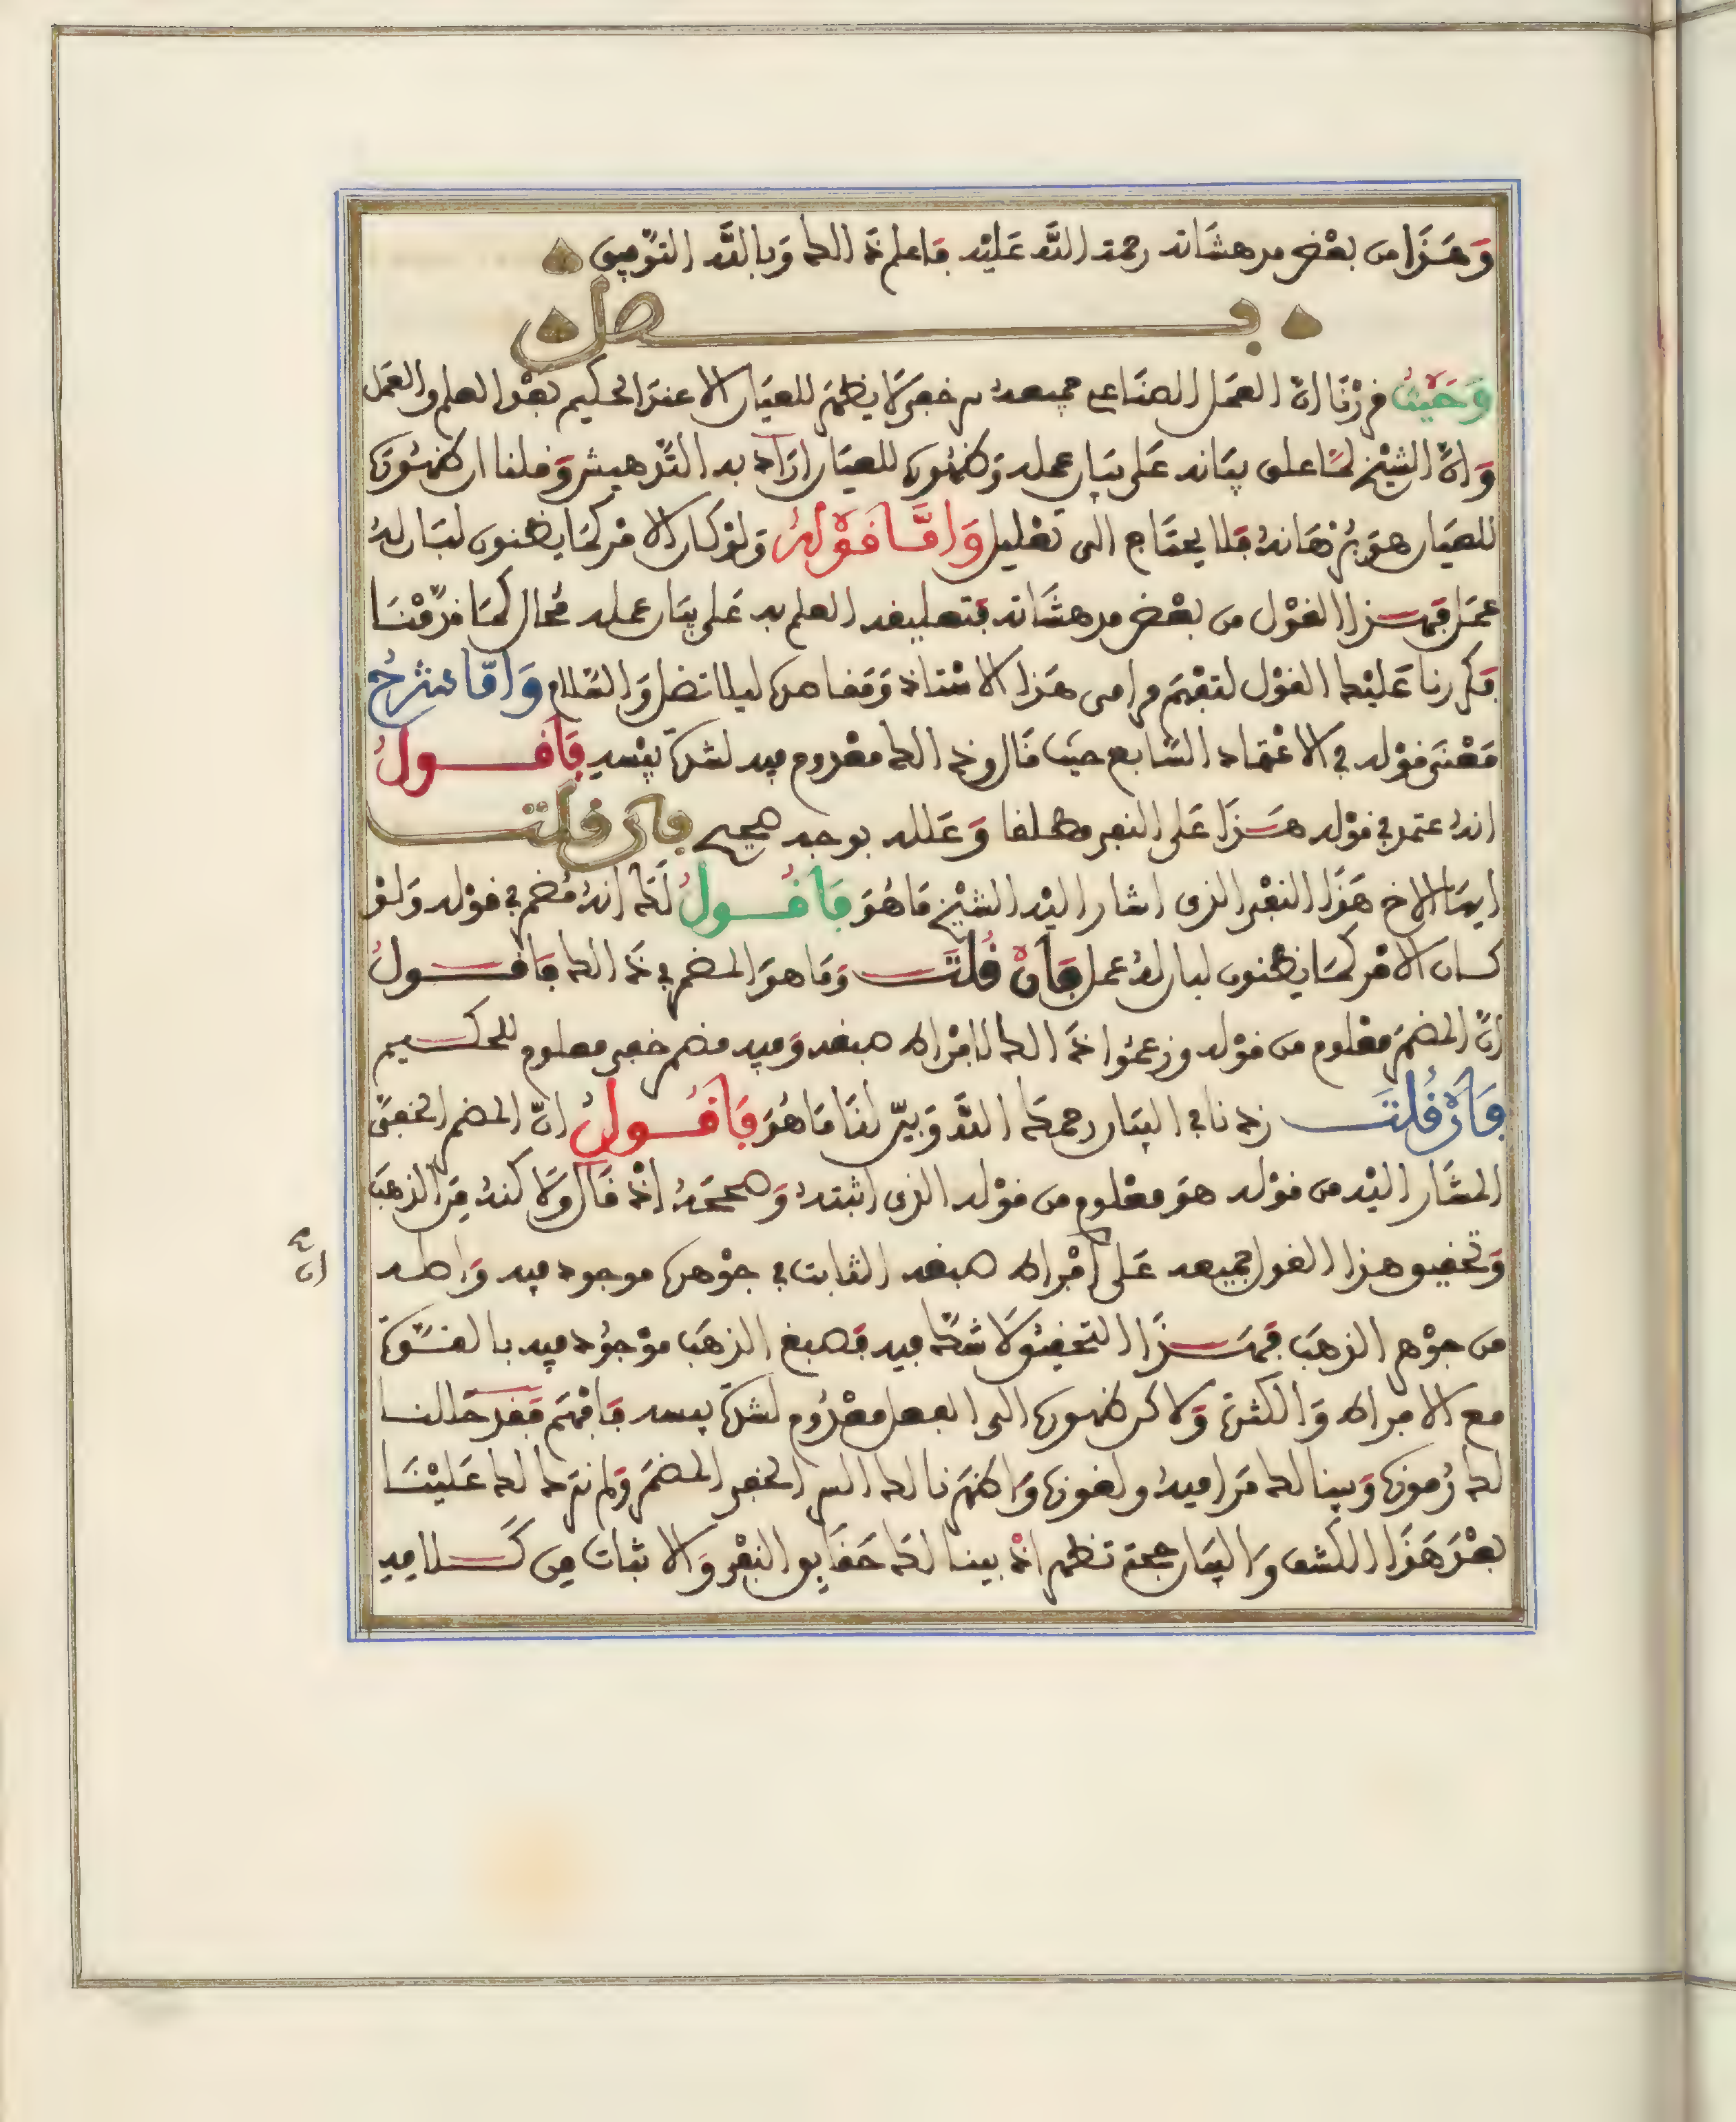 وَهَذَا من بعْض مدهشَاته رحمة اللَّه عَليْه فَاعلم ذَلك وَبِاللَّه التَّوْفيق
فصل
وَحَيْثُ قررْنَا انّ العمَل الصنَاعى جميعهُ سر خفى لَا يظهَر للعيَان الا عندَ الحكيم بعْد العلم والعَمل
وَانَّ الشيْخ لمَّا علق بيَانه عَلى بيَان عمله وَظهُوره للعيَان ارَاد به التَّدهيش وَقلنا ان ظهُورَه
للعيَان هوَ بُرْهَانهُ فَلا يحتَاج الى تعْليل وَامَّا قَوْلهُ وَلوْ كَان الامْر كمَا يظنون لبَان لهُ
عمَل فهَذا القوْل من بعْض مدهشَاته فتعليقه العلم به عَلى بيَان عمله محَال كمَا قدّمْنَا
فَكررنا عَليْك القوْل لتفْهَم مرامى هَذا الاسْتاذ وَمقاصده ليلا تضل وَالسَّلام وَامَّا شرْحُ
مَعْنى قوْله في الاعْتماد السَّابع حيثَ قَال وذلك معْدوم فيه لشدة يبْسه فَأقُولُ
انهُ اعتمد في قوْله هَذَا عَلى النفى مطلقا وَعَلله بوجه صحيح فان قلت
ايهَا الاخ هَذَا النفْى الذى اشار اليْه الشيْخ مَا هُوَ فَأقُولُ لَكَ انهُ مُضمر في قوْله وَلوْ
كَان الامْر كمَا يظنون لبان لهُ عمل فَان قُلتَ وَمَا هوَ المضمر في ذَلك فَاقُولُ
انَّ المضمَر معْلوم من قوْله وزعمُوا ذَلك لافْراط صبغه وَفيه مضمر خفى معلوم للحكيم
فَانْ قُلتَ زدنا في البيَان رحمكَ اللَّه وَبيّن لنَا مَا هُوَ فَأقُولُ انّ المضمر الخفىَّ
المشَار اليْه من قوْله هوَ معْلوم من قوْله الذى اثبتهُ وَصححَهُ اذْ قَال وَلَاكنهُ مِن الذهَب
وَتحقيق هذا القول جميعه عَلى افْراط صبغه الثابت في جوْهره موجود فيه وَاصله
من جوْهر الذهَب فهَذَا التحقيق لَا شكّ فيه فَصبغ الذهَب موْجوُد فيه بالقوَّة
مع الافراط وَالكثرة وَلاكن ظهوره الى الفعل معْدُوم لشدّة يبسه فَافهَم فَقد حَللنا
لك رُموزه وَبينا لك مَراميهُ ولغوزه وَاظهَرنا لك السر الخفى المضمَر وَلم نترك لك عَليْنَا
بعْدَ هَذَا الكشف وَالبيَان حجة تظهر اذْ بينا لكَ حَقَايق النفْى وَالاثبَات مِن كَلامِه